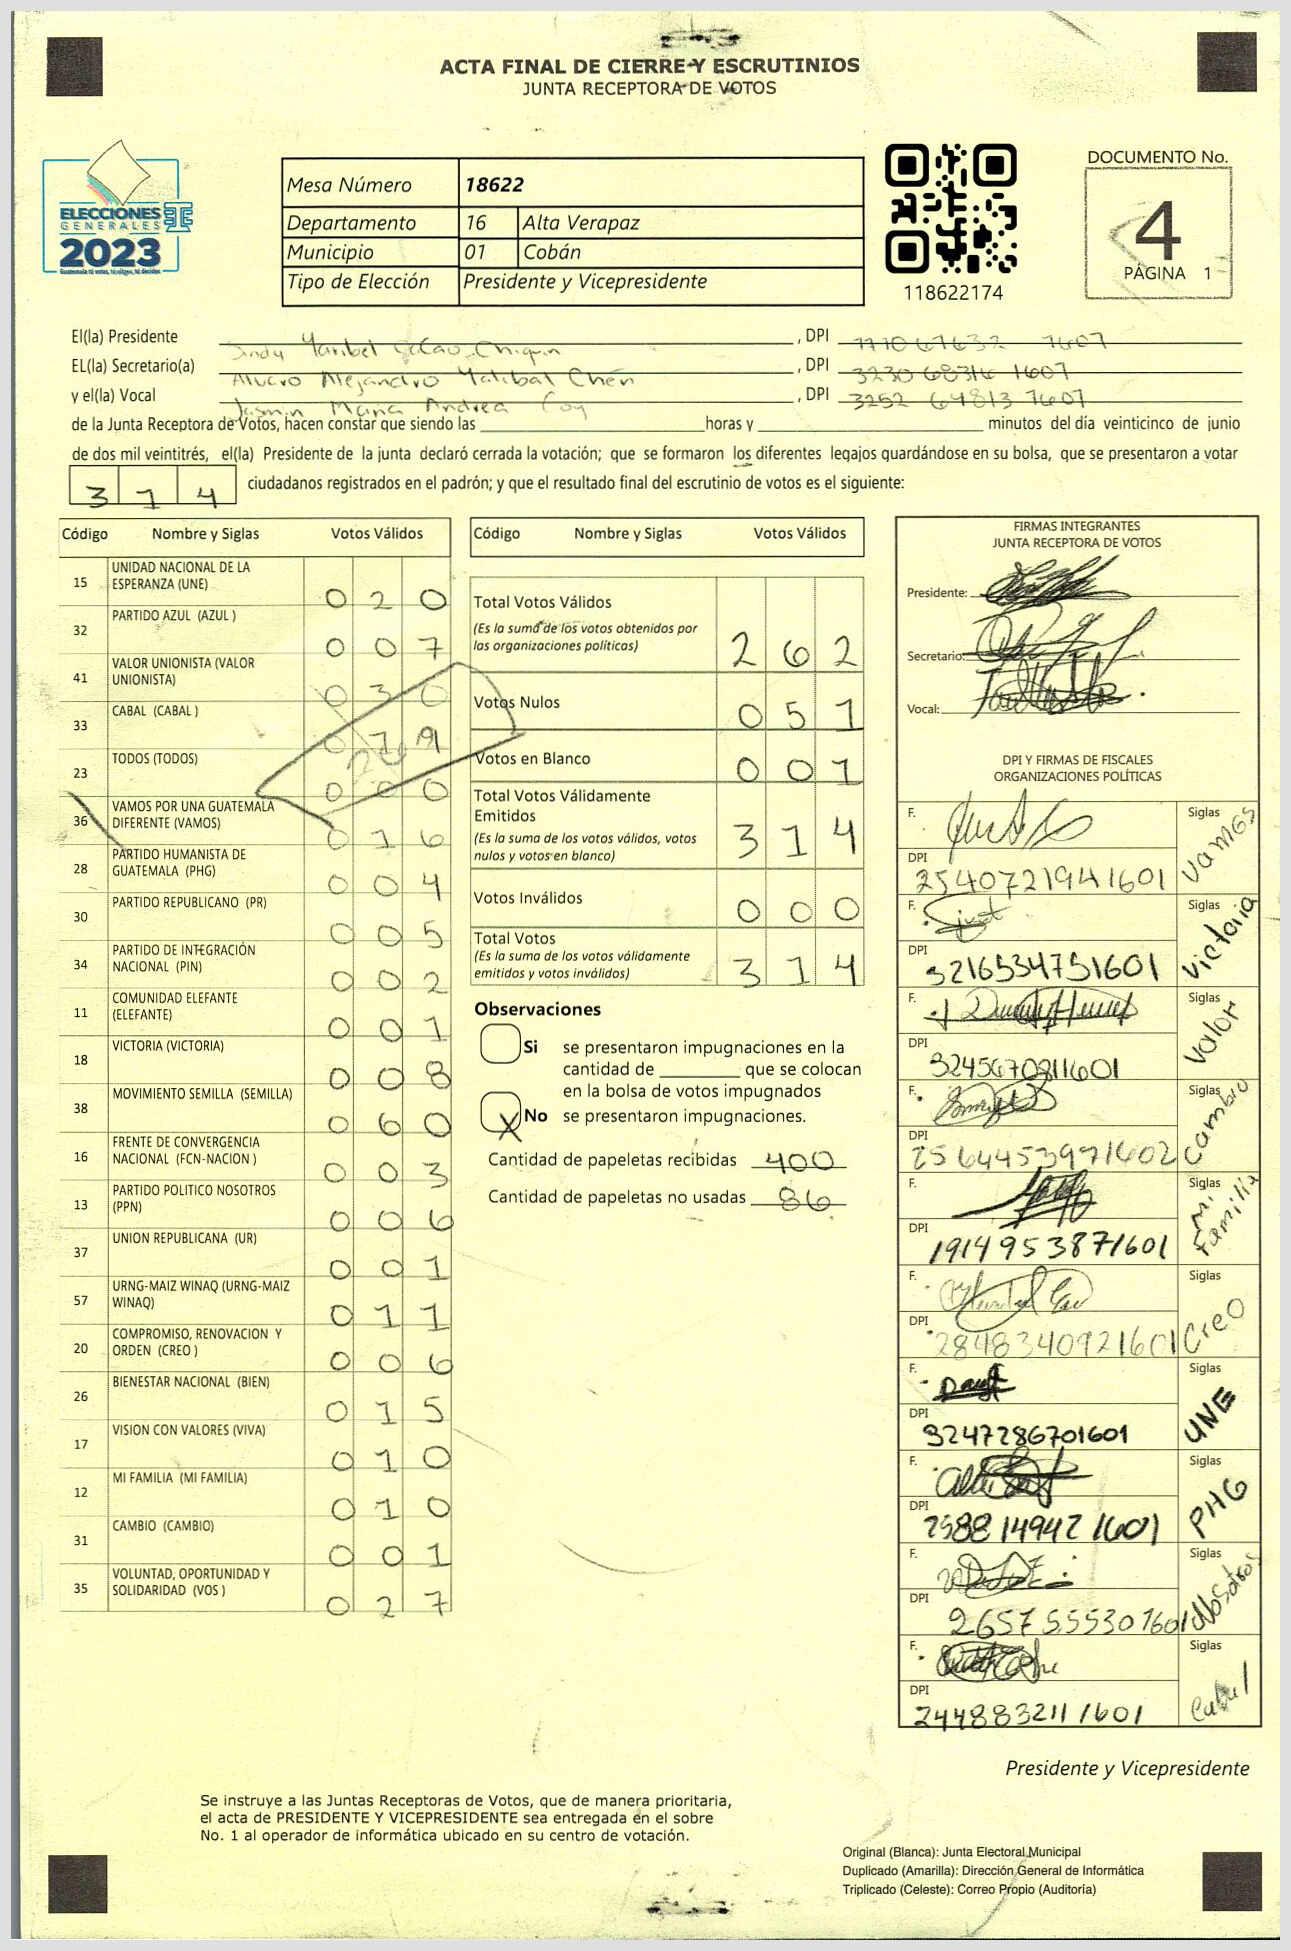 ACTA FINAL DE CIERRE Y ESCRUTINIOS
JUNTA RECEPTORA DE VOTOS
ELECCIONES
GENERALES
2023
Mesa Número 18622
Departamento 16 Alta Verapaz
Municipio 01 Cobán
Tipo de Elección Presidente y Vicepresidente
118622174
DOCUMENTO No.
4
PÁGINA 1
El(la) Presidente , DPI
EL(la) Secretario(a) Alvaro Alejandro Chén , DPI 3230 68316 1607
y el(la) Vocal Jasmin Maria Andrea Coy , DPI 3252 64813 1607
de la Junta Receptora de Votos, hacen constar que siendo las horas y minutos del día veinticinco de junio
de dos mil veintitrés, el(la) Presidente de la junta declaró cerrada la votación; que se formaron los diferentes legajos guardándose en su bolsa, que se presentaron a votar
314 ciudadanos registrados en el padrón; y que el resultado final del escrutinio de votos es el siguiente:
Código Nombre y Siglas Votos Válidos
15 UNIDAD NACIONAL DE LA ESPERANZA (UNE) 020
32 PARTIDO AZUL (AZUL ) 007
41 VALOR UNIONISTA (VALOR UNIONISTA) 030
33 CABAL (CABAL ) 019
23 TODOS (TODOS) 000
36 VAMOS POR UNA GUATEMALA DIFERENTE (VAMOS) 016
28 PARTIDO HUMANISTA DE GUATEMALA (PHG) 004
30 PARTIDO REPUBLICANO (PR) 005
34 PARTIDO DE INTEGRACIÓN NACIONAL (PIN) 002
11 COMUNIDAD ELEFANTE (ELEFANTE) 001
18 VICTORIA (VICTORIA) 008
38 MOVIMIENTO SEMILLA (SEMILLA) 060
16 FRENTE DE CONVERGENCIA NACIONAL (FCN-NACION ) 003
13 PARTIDO POLITICO NOSOTROS (PPN) 006
37 UNION REPUBLICANA (UR) 001
57 URNG-MAIZ WINAQ (URNG-MAIZ WINAQ) 011
20 COMPROMISO, RENOVACION Y ORDEN (CREO ) 006
26 BIENESTAR NACIONAL (BIEN) 015
17 VISION CON VALORES (VIVA) 010
12 MI FAMILIA (MI FAMILIA) 010
31 CAMBIO (CAMBIO) 001
35 VOLUNTAD, OPORTUNIDAD Y SOLIDARIDAD (VOS ) 027
Código Nombre y Siglas Votos Válidos
Total Votos Válidos
(Es la suma de los votos obtenidos por
las organizaciones políticas) 262
Votos Nulos 051
Votos en Blanco 001
Total Votos Válidamente
Emitidos
(Es la suma de los votos válidos, votos
nulos y votos en blanco) 314
Votos Inválidos 000
Total Votos
(Es la suma de los votos válidamente
emitidos y votos inválidos) 314
Observaciones
Si se presentaron impugnaciones en la
cantidad de que se colocan
en la bolsa de votos impugnados
X No se presentaron impugnaciones.
Cantidad de papeletas recibidas 400
Cantidad de papeletas no usadas 86
FIRMAS INTEGRANTES
JUNTA RECEPTORA DE VOTOS
Presidente:
Secretario:
Vocal:
DPI Y FIRMAS DE FISCALES
ORGANIZACIONES POLÍTICAS
F. Siglas Vamos
DPI 2540721941601
F. Siglas Victoria
DPI 3216534751601
F. Siglas Valor
DPI 3245670811601
F. Siglas Cambio
DPI 2564453971602
F. Siglas Mi Familia
DPI 1914953871601
F. Siglas Creo
DPI 2848340921601
F. Siglas UNE
DPI 3247286701601
F. Siglas PHG
DPI 2588149421601
F. Siglas Nosotros
DPI 2657555301601
F. Siglas Cabal
DPI 2448832111601
Presidente y Vicepresidente
Se instruye a las Juntas Receptoras de Votos, que de manera prioritaria,
el acta de PRESIDENTE Y VICEPRESIDENTE sea entregada en el sobre
No. 1 al operador de informática ubicado en su centro de votación.
Original (Blanca): Junta Electoral Municipal
Duplicado (Amarilla): Dirección General de Informática
Triplicado (Celeste): Correo Propio (Auditoría)